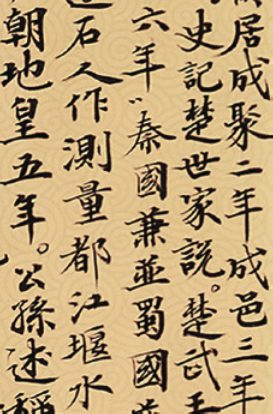 居成聚二年成邑三年
史記楚世家說。楚武王
六年“秦國兼並蜀國
石人作測量都江堰水
朝地皇五年。公孫述稱